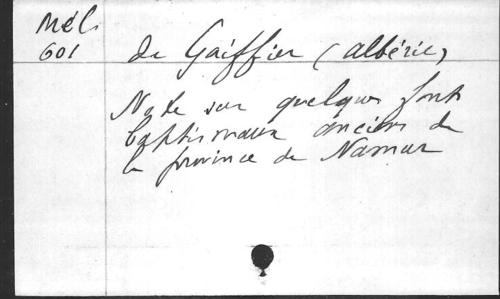 Mél.
601
de Gaiffier (Albéric)
Note sur quelques fonts
baptismaux anciens de
la province de Namur